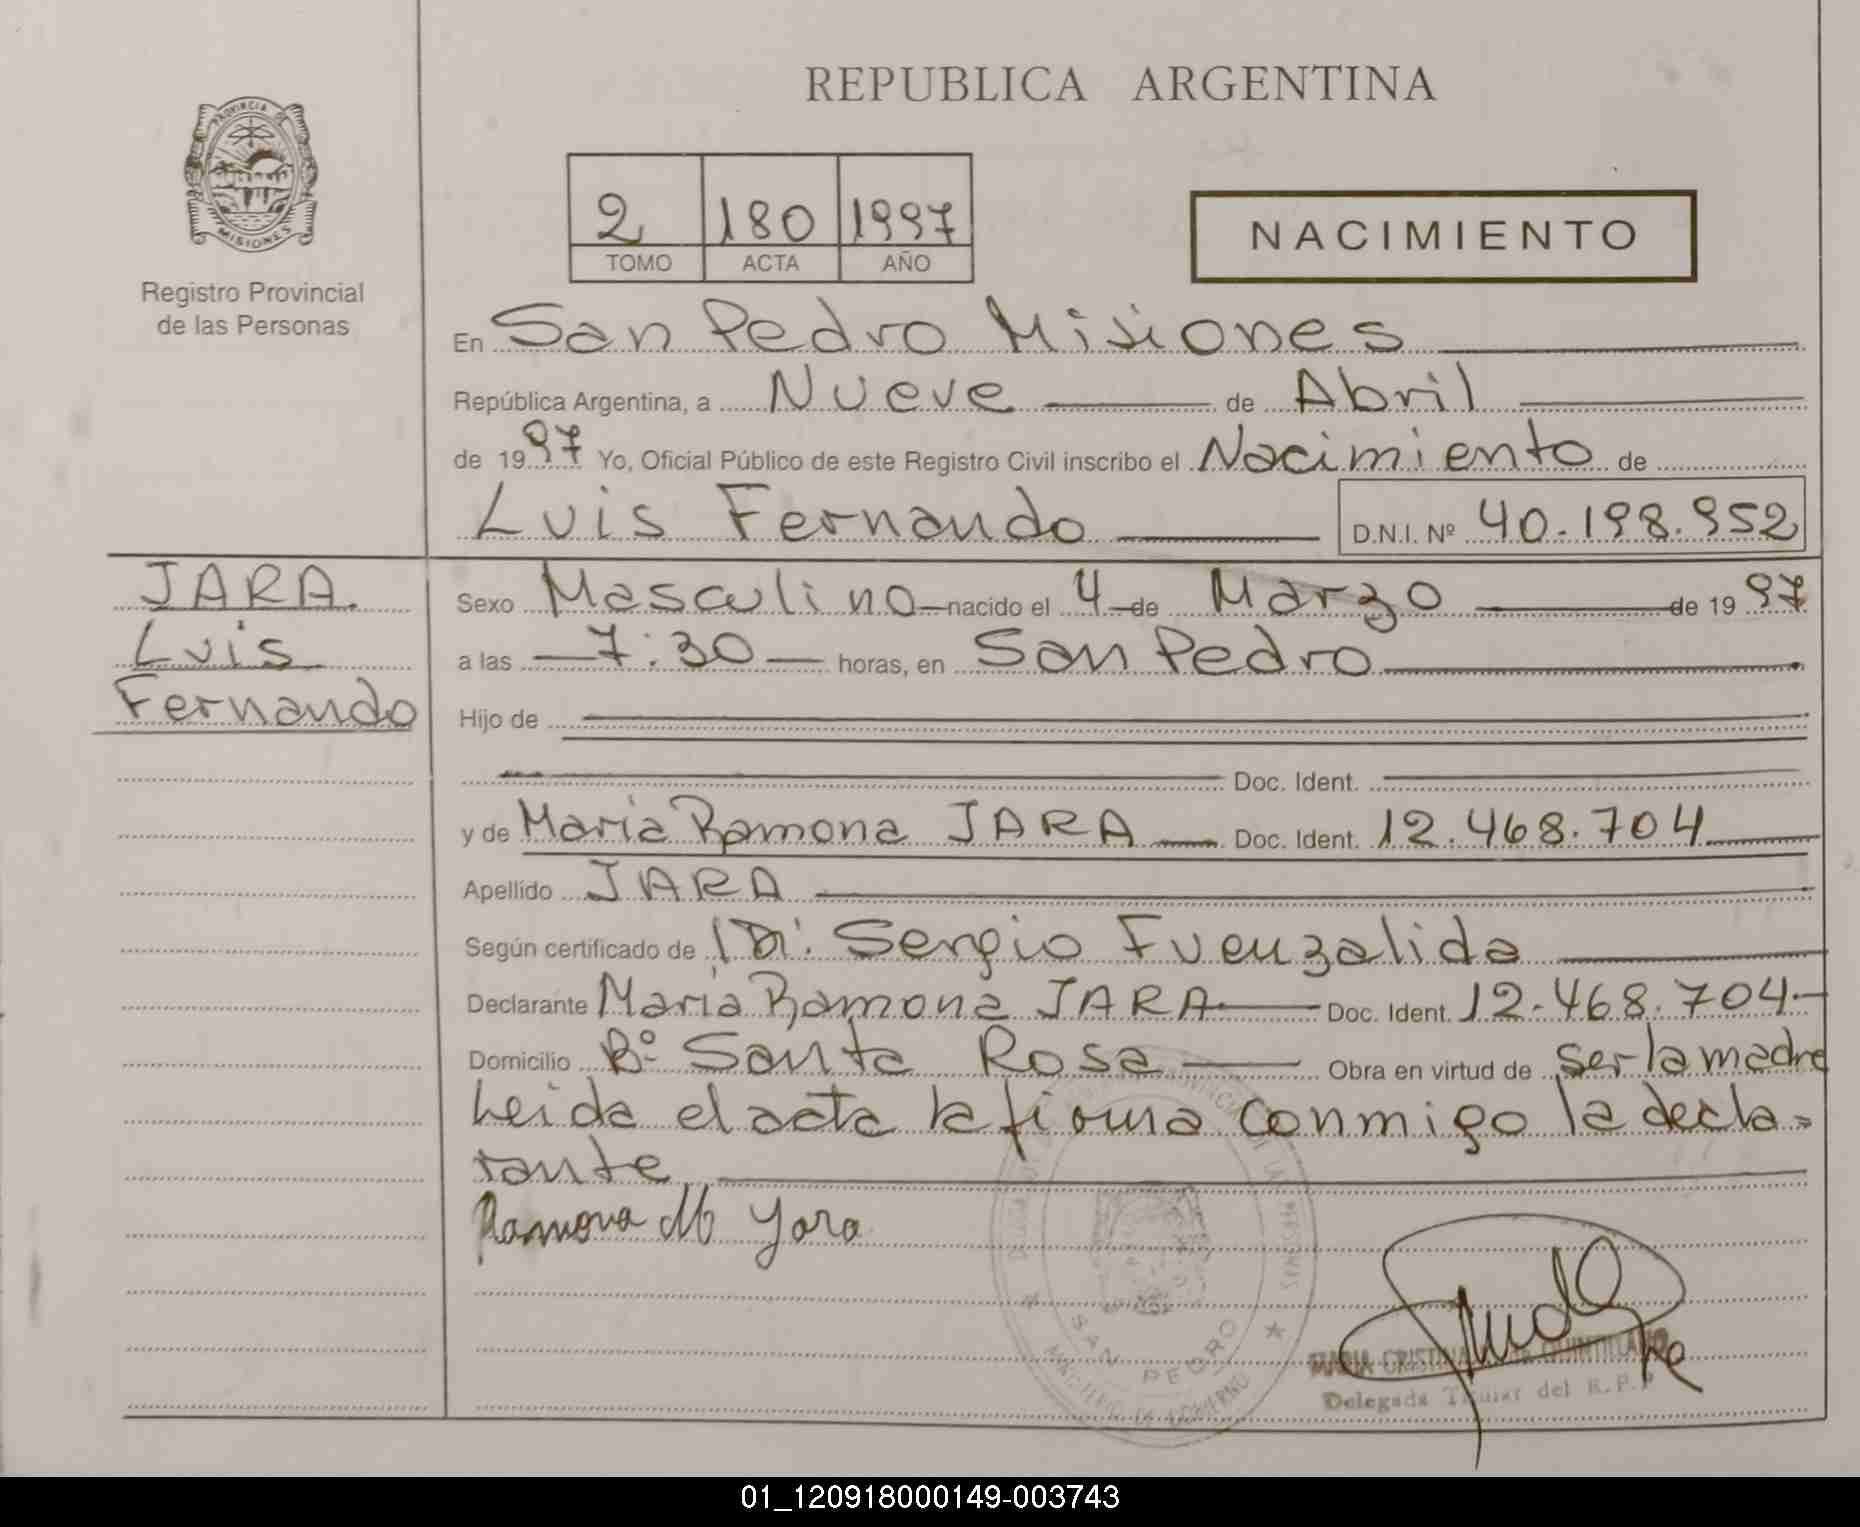 REPUBLICA ARGENTINA
PROVINCIA DE
MISIONES
Registro Provincial
de las Personas
2 180 1997
TOMO ACTA AÑO
NACIMIENTO
En San Pedro Misiones
República Argentina, a Nueve de Abril
de 1997 Yo, Oficial Público de este Registro Civil inscribo el Nacimiento de
Luis Fernando D.N.I. Nº 40.198.952
JARA
Luis
Fernando
Sexo Masculino nacido el 4 de Marzo de 1997
a las 7:30 horas, en San Pedro
Hijo de
Doc. Ident.
y de Maria Ramona JARA Doc. Ident. 12.468.704
Apellido JARA
Según certificado de Dr. Sergio Fuenzalida
Declarante Maria Ramona JARA Doc. Ident. 12.468.704
Domicilio Bº Santa Rosa Obra en virtud de ser la madre
Leida el acta la firma conmigo la decla-
rante
Ramona M Jara
SAN PEDRO
MINISTERIO DE GOBIERNO
MARIA CRISTINA QUINTILLANO
Delegada Titular del R.P.P
01_120918000149-003743